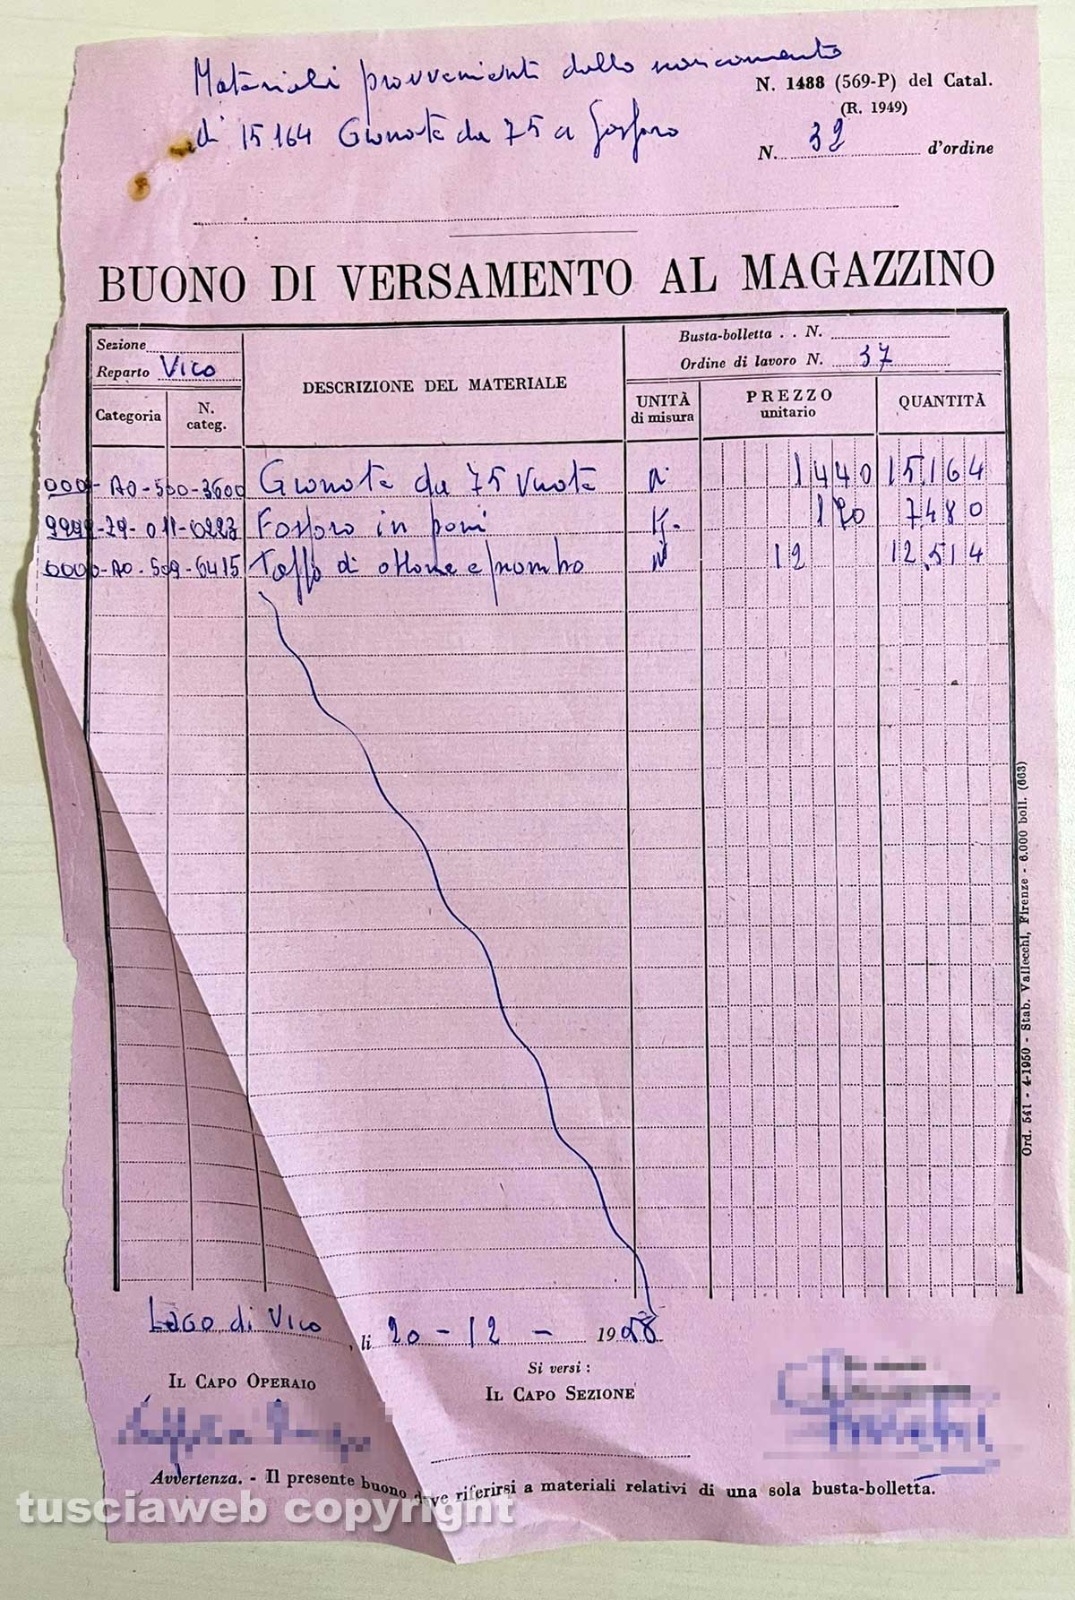 Materiali provvenienti dallo scaricamento
di 15164 Granate da 75 a fosforo
N. 1488 (569-P) del Catal.
(R. 1949)
N. 32 d'ordine
BUONO DI VERSAMENTO AL MAGAZZINO
Sezione
Reparto Vico
Categoria
N. categ.
DESCRIZIONE DEL MATERIALE
Busta-bolletta . . N.
Ordine di lavoro N. 37
UNITÀ di misura
PREZZO unitario
QUANTITÀ
000-A0-500-3600 Granate da 75 Vuote N 1440 15.164
9999-79-011-0223 Fosforo in pani K. 170 7480
0000-A0-509-6415 Tappo di ottone e piombo N 12 12.514
Ord. 541 - 4-1950 - Stab. Vallecchi, Firenze - 6.000 boll. (663)
Lago di Vico, li 20-12- 19
IL CAPO OPERAIO
Si versi :
IL CAPO SEZIONE
Avvertenza. - Il presente buono deve riferirsi a materiali relativi di una sola busta-bolletta.
tusciaweb copyright